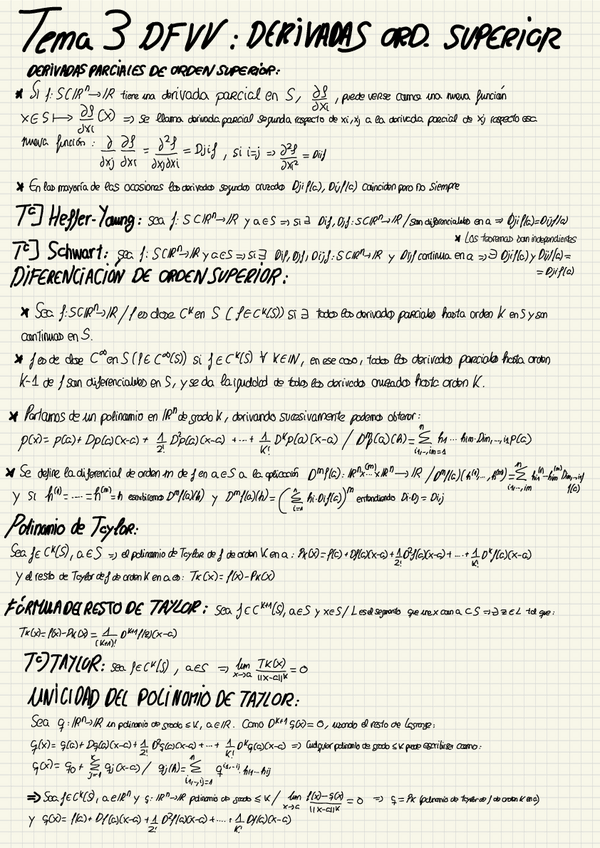 Tema 3 DFVV: DERIVADAS ORD. SUPERIOR
DERIVADAS PARCIALES DE ORDEN SUPERIOR:
* Si f: S⊂IRⁿ→IR tiene una derivada parcial en S, ∂f/∂xi, puede verse como una nueva función
x∈S ↦ ∂f/∂xi (x) => Se llama derivada parcial segunda respecto de xi, xj a la derivada parcial de xj respecto esa
nueva función: ∂/∂xj ∂f/∂xi = ∂²f/∂xj∂xi = Djif, si i=j => ∂²f/∂xi² = Diif
* En la mayoría de las ocasiones las derivadas segundas cruzadas Djif(a), Dijf(a) coinciden pero no siempre
Tᶜ] Heffer-Young: sea f: S⊂IRⁿ→IR y a∈S => si ∃ Dif, Djf: S⊂IRⁿ→IR / son diferenciables en a => Djif(a)=Dijf(a)
* Los teoremas son independientes
Tᶜ] Schwart: sea f: S⊂IRⁿ→IR y a∈S => si ∃ Dif, Djf, Dijf: S⊂IRⁿ→IR y Dijf continua en a => ∃ Djif(a) y Dijf(a)=
= Djif(a)
DIFERENCIACIÓN DE ORDEN SUPERIOR:
* Sea f: S⊂IRⁿ→IR / f es de clase Cᵏ en S (f∈Cᵏ(S)) si ∃ todas las derivadas parciales hasta orden K en S y son
continuas en S.
* f es de clase C∞ en S (f∈C∞(S)) si f∈Cᵏ(S) ∀ K∈IN, en ese caso, todas las derivadas parciales hasta orden
K-1 de f son diferenciables en S, y se da la igualdad de todas las derivadas cruzadas hasta orden K.
* Partamos de un polinomio en IRⁿ de grado k, derivando sucesivamente podemos obtener:
p(x) = p(a) + Dp(a)(x-a) + 1/2! D²p(a)(x-a) + ... + 1/K! Dᵏp(a)(x-a) / Dᵐp(a)(h) = Σⁿ i1,...,im=1 hi1 ... him Dim,...,i1 p(a)
* Se define la diferencial de orden m de f en a∈S a la aplicación Dᵐf(a): IRⁿx...⁽ᵐ⁾xIRⁿ → IR / Dᵐf(a)(h⁽¹⁾,...,h⁽ᵐ⁾) = Σⁿ i1,...,im hi1⁽¹⁾...him⁽ᵐ⁾ Dim,...,i1 f(a)
y si h⁽¹⁾ = ..... = h⁽ᵐ⁾ = h escribimos Dᵐf(a)(h) y Dᵐf(a)(h) = (Σⁿ i=1 hi·Dif(a))ᵐ entendiendo Di·Dj = Dij
Polinomio de Taylor:
Sea f∈Cᵏ(S), a∈S => el polinomio de Taylor de f de orden K en a: Pk(x)=f(a)+Df(a)(x-a)+1/2! D²f(a)(x-a)+...+1/K! Dᵏf(a)(x-a)
y el resto de Taylor de f de orden K en a es: Tk(x) = f(x)-Pk(x)
FÓRMULA DEL RESTO DE TAYLOR: sea f∈Cᵏ⁺¹(S), a∈S y x∈S / L es el segmento que une x con a ⊂ S => ∃ z∈L tal que:
Tk(x)=f(x)-Pk(x) = 1/(k+1)! Dᵏ⁺¹f(z)(x-a)
Tᶜ) TAYLOR: sea f∈Cᵏ(S), a∈S => lim x→a Tk(x)/||x-a||ᵏ = 0
UNICIDAD DEL POLINOMIO DE TAYLOR:
Sea q: IRⁿ→IR un polinomio de grado ≤ k, a∈IR. Como Dᵏ⁺¹q(x)=0, usando el resto de Lagrange:
q(x) = q(a) + Dq(a)(x-a) + 1/2! D²q(a)(x-a) + ... + 1/K! Dᵏq(a)(x-a) => Cualquier polinomio de grado ≤ k puede escribirse como:
q(x) = q0 + Σᵏ j=1 qj(x-a) / qj(h) = Σⁿ i1,...,ij=1 q⁽ⁱ¹,...,ⁱʲ⁾ hi1 ... hij
=> Sea f∈Cᵏ(S), a∈IRⁿ y q: IRⁿ→IR polinomio de grado ≤ k / lim x→a f(x)-q(x)/||x-a||ᵏ = 0 => q = Pk (polinomio de taylor de f de orden K en a)
y q(x) = f(a) + Df(a)(x-a) + 1/2! D²f(a)(x-a) + ... + 1/K! Df(a)(x-a)